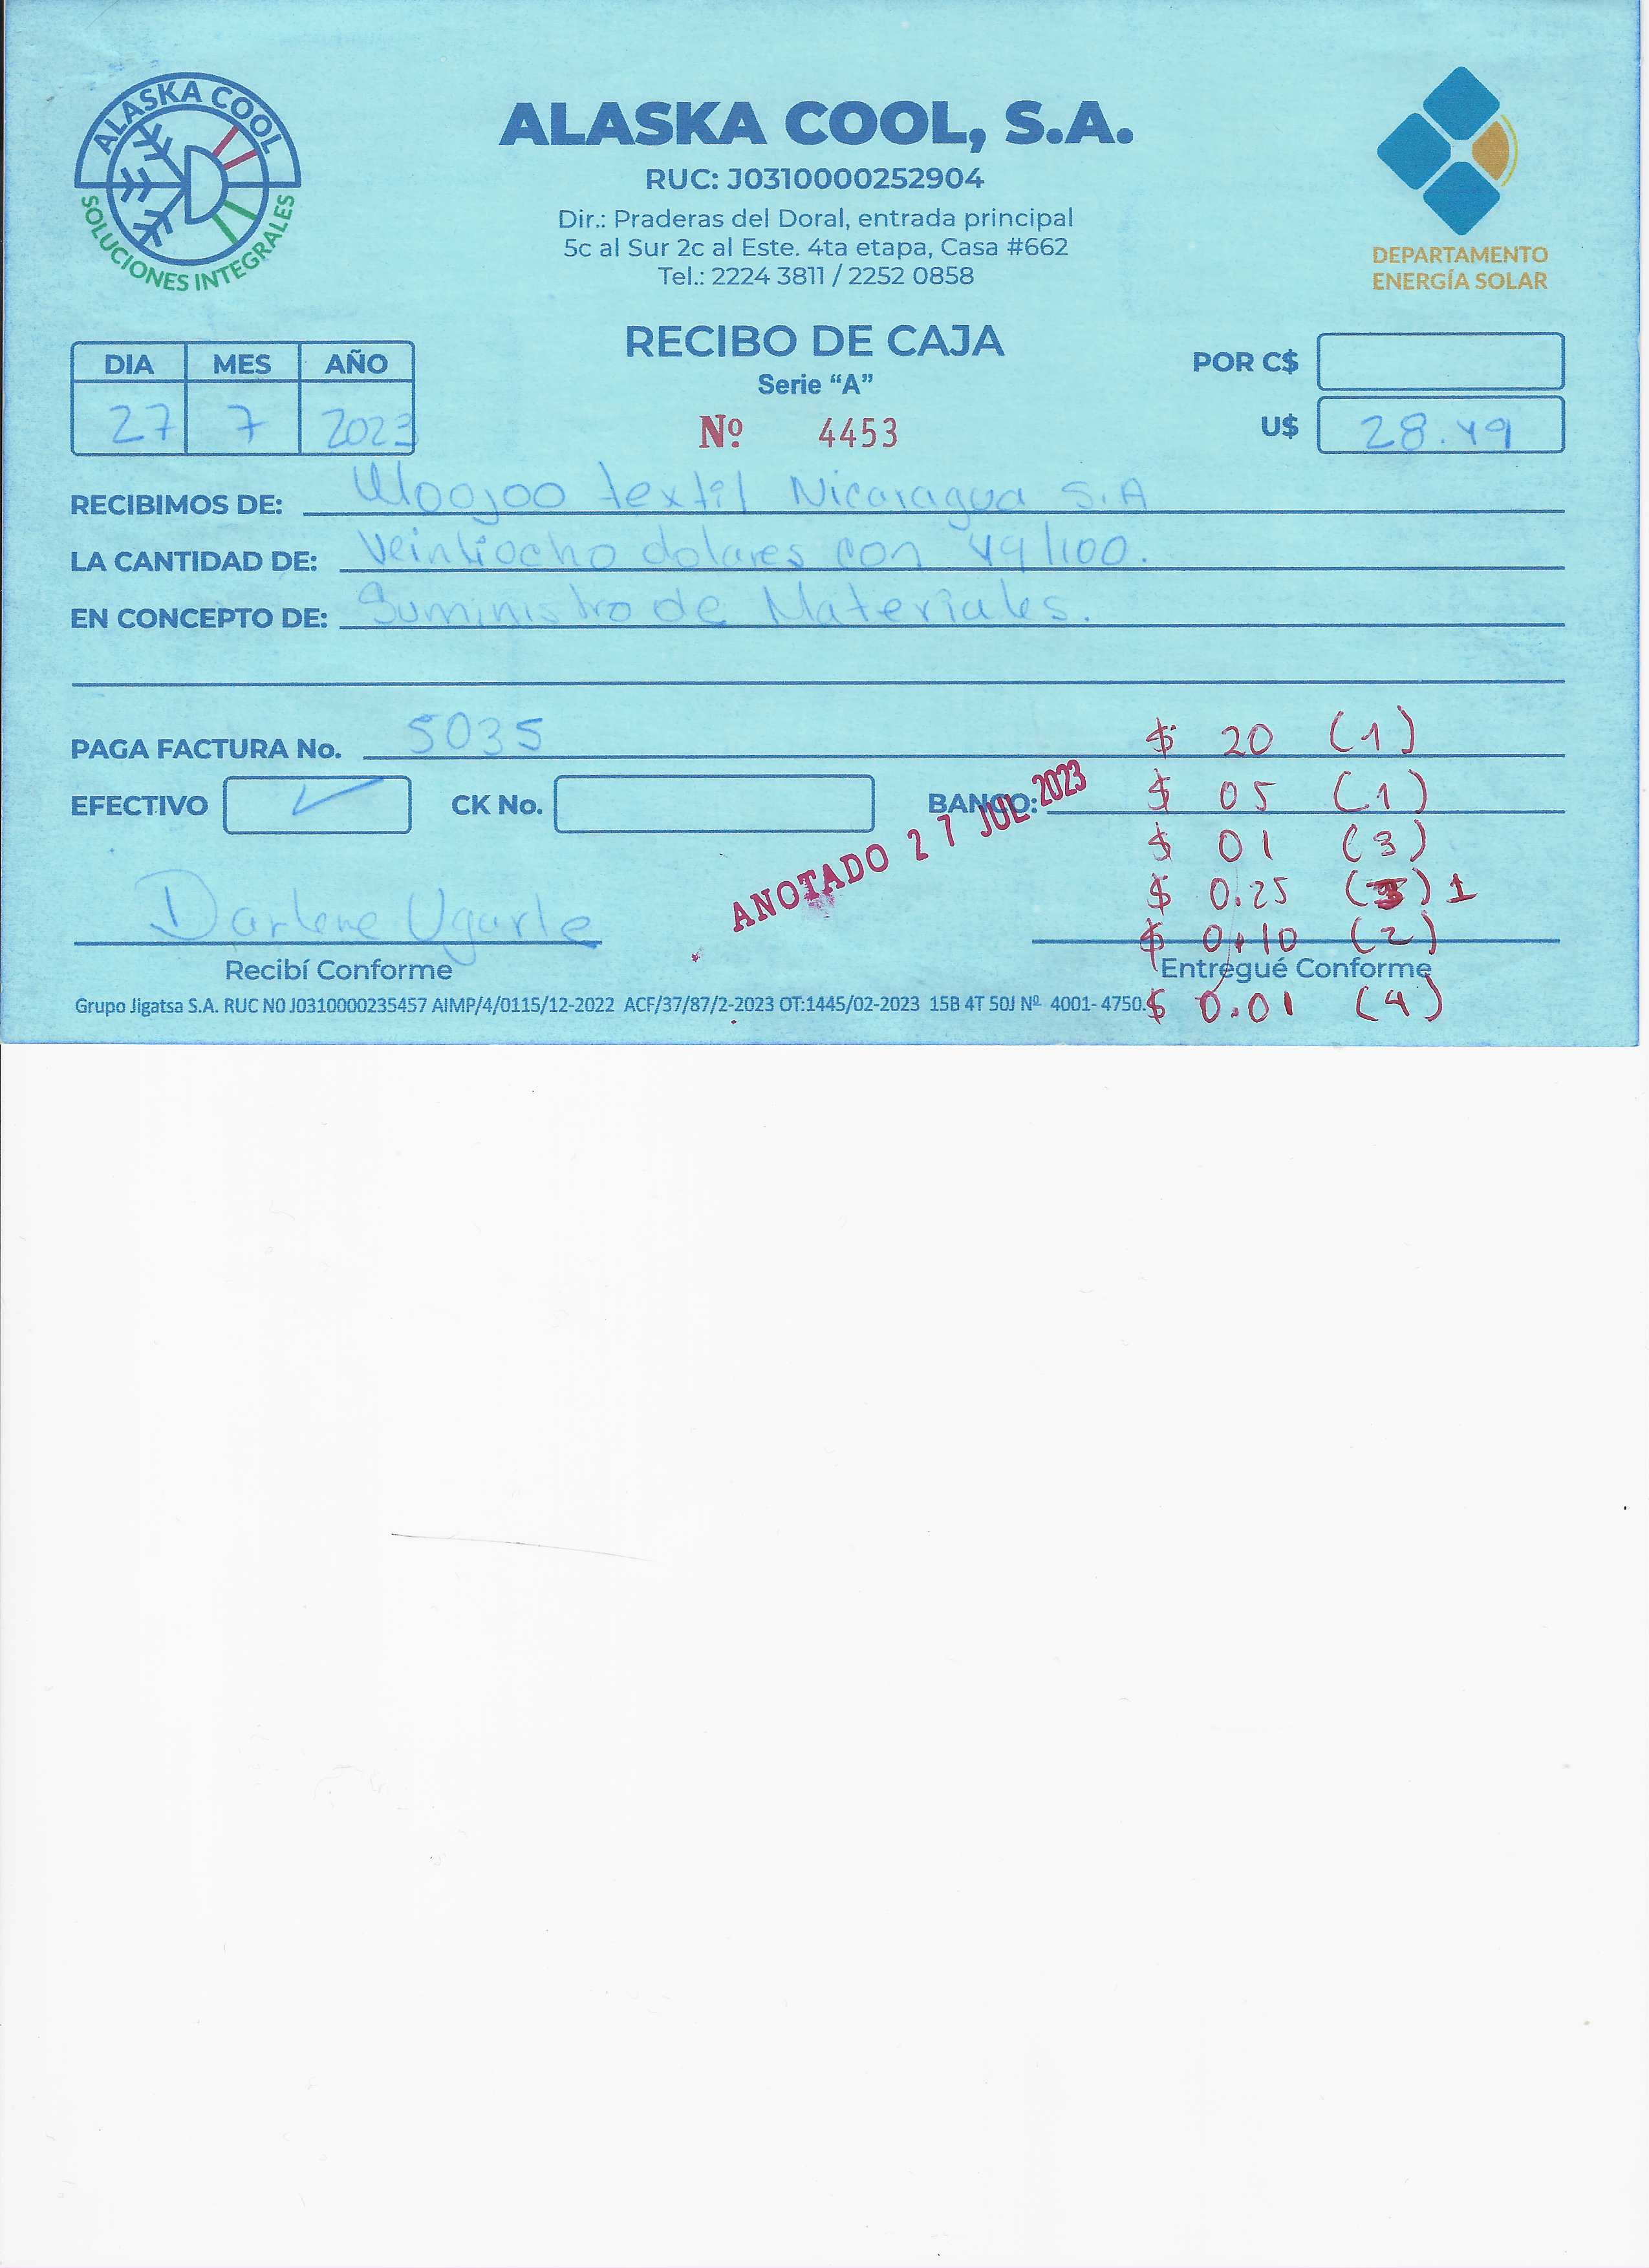 ALASKA COOL
SOLUCIONES INTEGRALES
ALASKA COOL, S.A.
RUC: J0310000252904
Dir.: Praderas del Doral, entrada principal
5c al Sur 2c al Este. 4ta etapa, Casa #662
Tel.: 2224 3811 / 2252 0858
DEPARTAMENTO
ENERGÍA SOLAR
RECIBO DE CAJA
Serie “A”
Nº 4453
DIA MES AÑO
27 7 2023
POR C$
U$ 28.49
RECIBIMOS DE: Woojoo textil Nicaragua S.A
LA CANTIDAD DE: Veintiocho dolares con 49/100.
EN CONCEPTO DE: Suministro de Materiales.
PAGA FACTURA No. 5035
EFECTIVO ✓ CK No. BANCO:
ANOTADO 27 JUL 2023
$ 20 (1)
$ 05 (1)
$ 01 (3)
$ 0.25 (3) 1
$ 0.10 (2)
$ 0.01 (4)
Darlene Ugarte
Recibí Conforme
Entregué Conforme
Grupo Jigatsa S.A. RUC N0 J0310000235457 AIMP/4/0115/12-2022 ACF/37/87/2-2023 OT:1445/02-2023 15B 4T 50J Nº 4001- 4750.